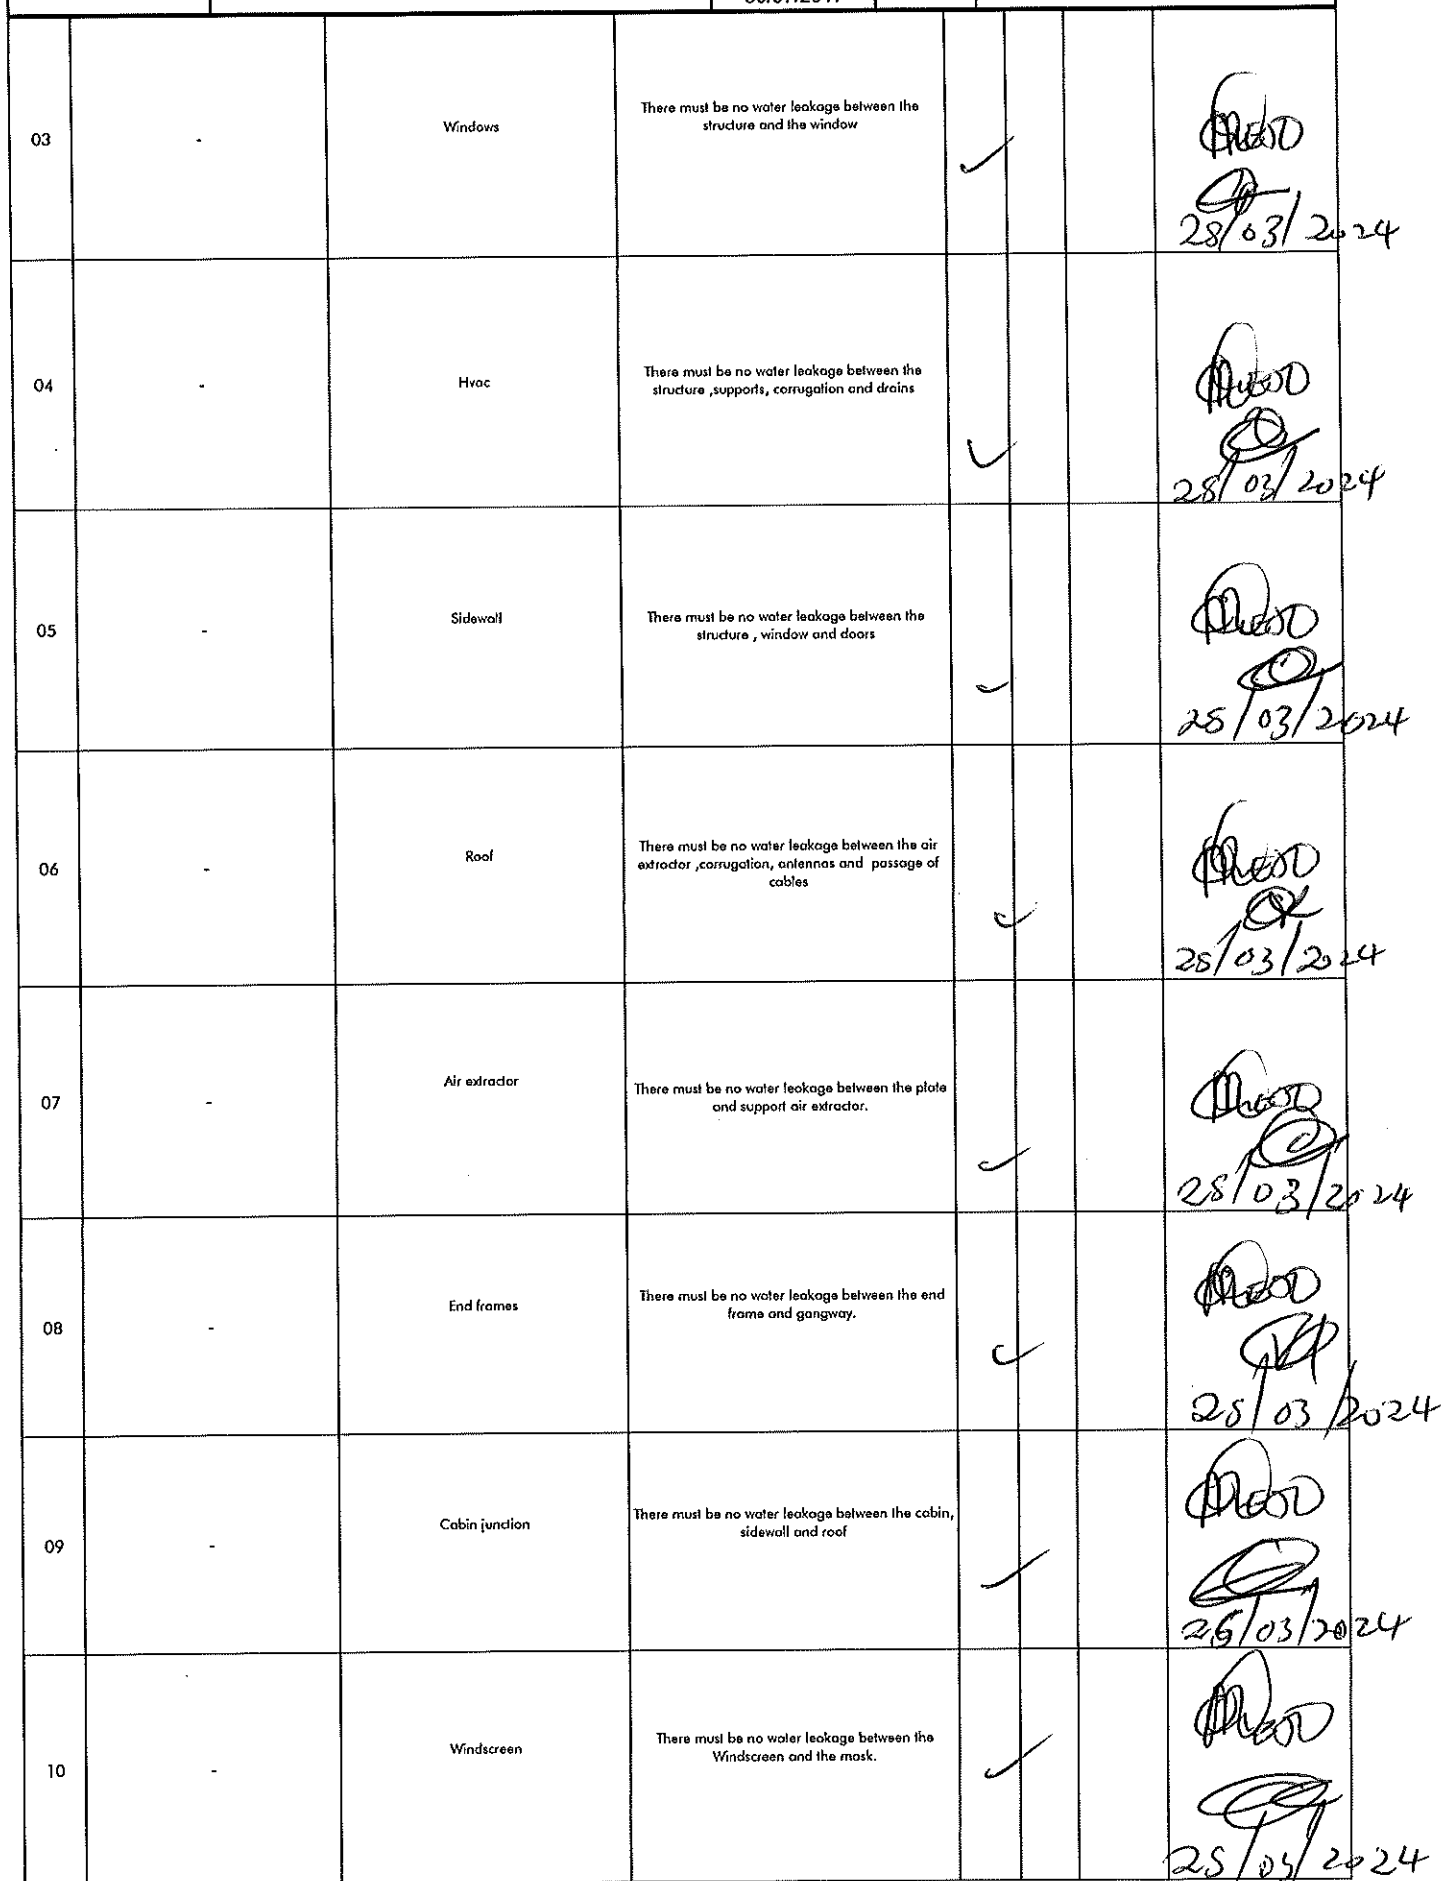 03
-
Windows
There must be no water leakage between the
structure and the window
28/03/2024
04
-
Hvac
There must be no water leakage between the
structure ,supports, corrugation and drains
28/03/2024
05
-
Sidewall
There must be no water leakage between the
structure , window and doors
28/03/2024
06
-
Roof
There must be no water leakage between the air
extractor ,corrugation, antennas and passage of
cables
28/03/2024
07
-
Air extractor
There must be no water leakage between the plate
and support air extractor.
28/03/2024
08
-
End frames
There must be no water leakage between the end
frame and gangway.
28/03/2024
09
-
Cabin junction
There must be no water leakage between the cabin,
sidewall and roof
/03/2024
10
-
Windscreen
There must be no water leakage between the
Windscreen and the mask.
/2024